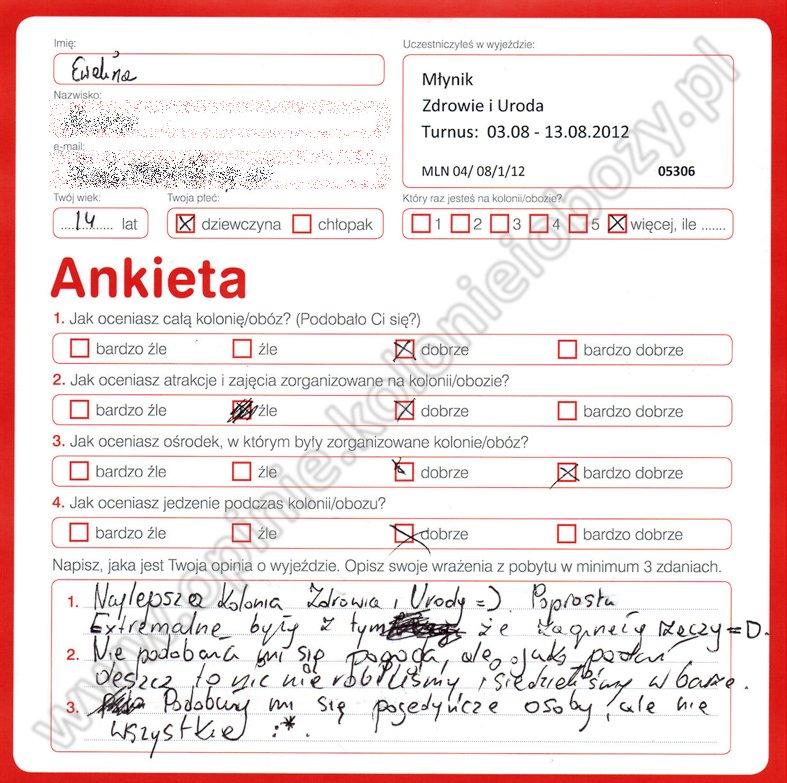 Imię:
Ewelina
Uczestniczyłeś w wyjeździe:
Młynik
Zdrowie i Uroda
Turnus: 03.08 - 13.08.2012
MLN 04/ 08/1/12 05306
Nazwisko:
e-mail:
Twój wiek:
14 lat
Twoja płeć:
dziewczyna chłopak
Który raz jesteś na kolonii/obozie?
1 2 3 4 5 więcej, ile .......
Ankieta
1. Jak oceniasz całą kolonię/obóz? (Podobało Ci się?)
bardzo źle źle dobrze bardzo dobrze
2. Jak oceniasz atrakcje i zajęcia zorganizowane na kolonii/obozie?
bardzo źle źle dobrze bardzo dobrze
3. Jak oceniasz ośrodek, w którym były zorganizowane kolonie/obóz?
bardzo źle źle dobrze bardzo dobrze
4. Jak oceniasz jedzenie podczas kolonii/obozu?
bardzo źle źle dobrze bardzo dobrze
Napisz, jaka jest Twoja opinia o wyjeździe. Opisz swoje wrażenia z pobytu w minimum 3 zdaniach.
1. Najlepsza kolonia Zdrowia i Urody =). Poprostu
Extremalne były z tym że zaginęły rzeczy =D.
2. Nie podobała mi się pogoda, ale jak padał
deszcz to nic nie robiliśmy i siedzieliśmy w bazie.
3. Podobały mi się pojedyńcze osoby, ale nie
wszystkie :*.
www.opinie.kolonieiobozy.pl